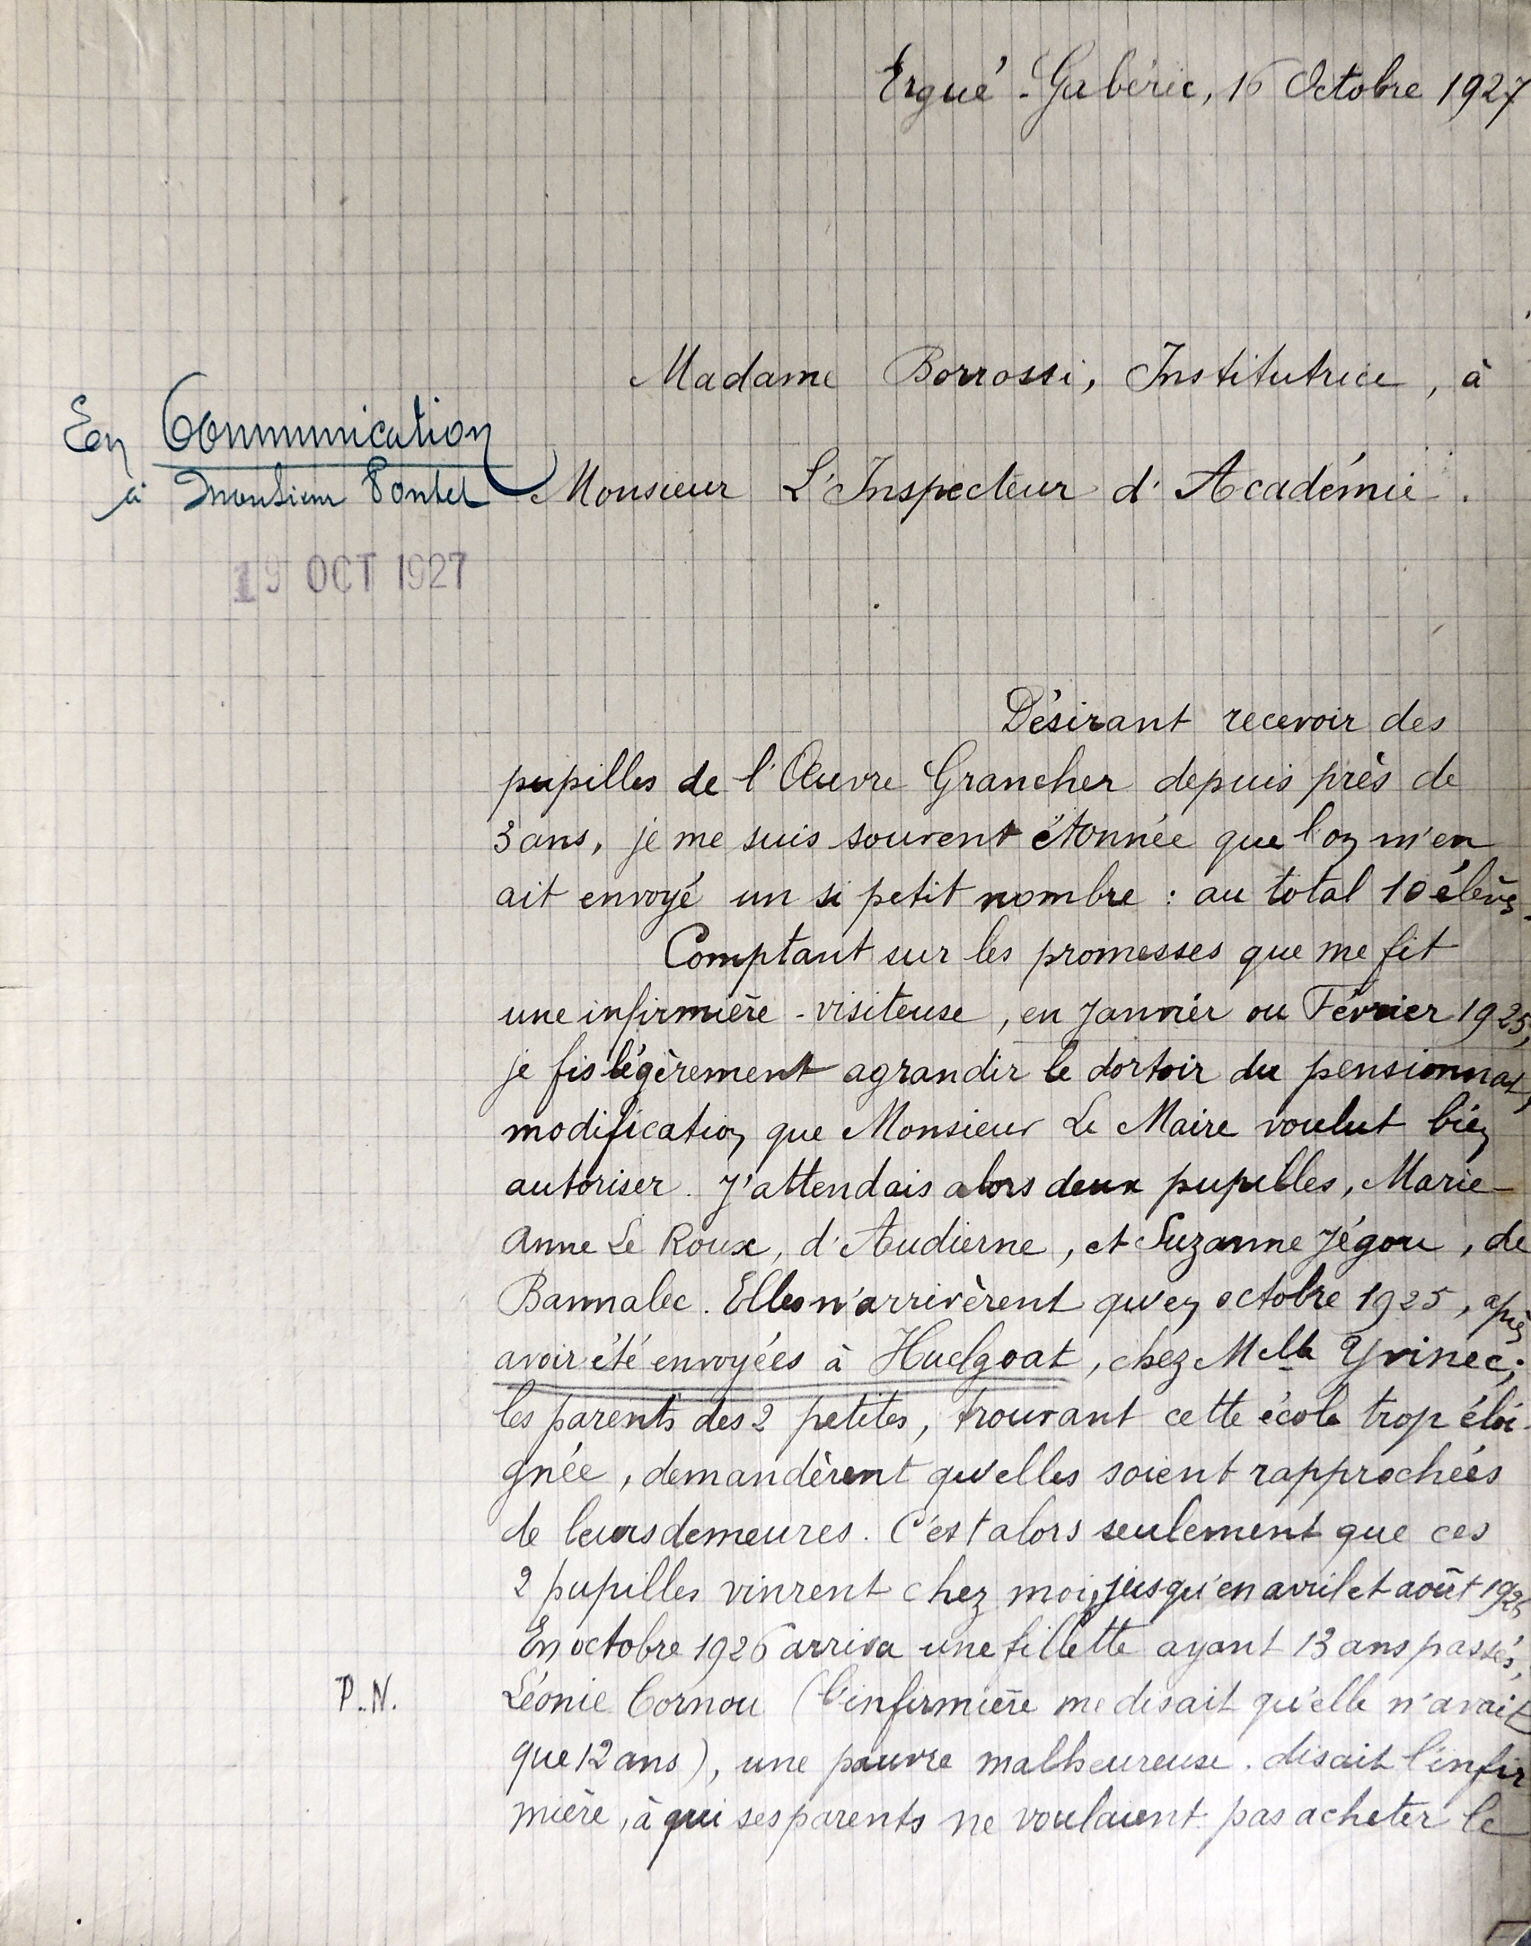 Ergué-Gabéric, 16 Octobre 1927
Madame Borrossi, Institutrice, à
En Communication
à Monsieur Pontel
Monsieur L'Inspecteur d'Académie.
19 OCT 1927
Désirant recevoir des
pupilles de l'Œuvre Grancher depuis près de
3 ans, je me suis souvent étonnée que l'on m'en
ait envoyé un si petit nombre : au total 10 élèves.
Comptant sur les promesses que me fit
une infirmière-visiteuse, en Janvier ou Février 1925,
je fis légèrement agrandir le dortoir du pensionnat,
modification que Monsieur Le Maire voulut bien
autoriser. J'attendais alors deux pupilles, Marie-
Anne Le Roux, d'Audierne, et Suzanne Jégou, de
Bannalec. Elles n'arrivèrent qu'en octobre 1925, après
avoir été envoyées à Huelgoat, chez Melle Yvinec;
les parents des 2 petites, trouvant cette école trop éloi-
gnée, demandèrent qu'elles soient rapprochées
de leurs demeures. C'est alors seulement que ces
2 pupilles vinrent chez moi, jusqu'en avril et août 1926.
En octobre 1926 arriva une fillette ayant 13 ans passés,
P.N.
Léonie Cornou (l'infirmière me disait qu'elle n'avait
que 12 ans), une pauvre malheureuse, disait l'infir
mière, à qui ses parents ne voulaient pas acheter le